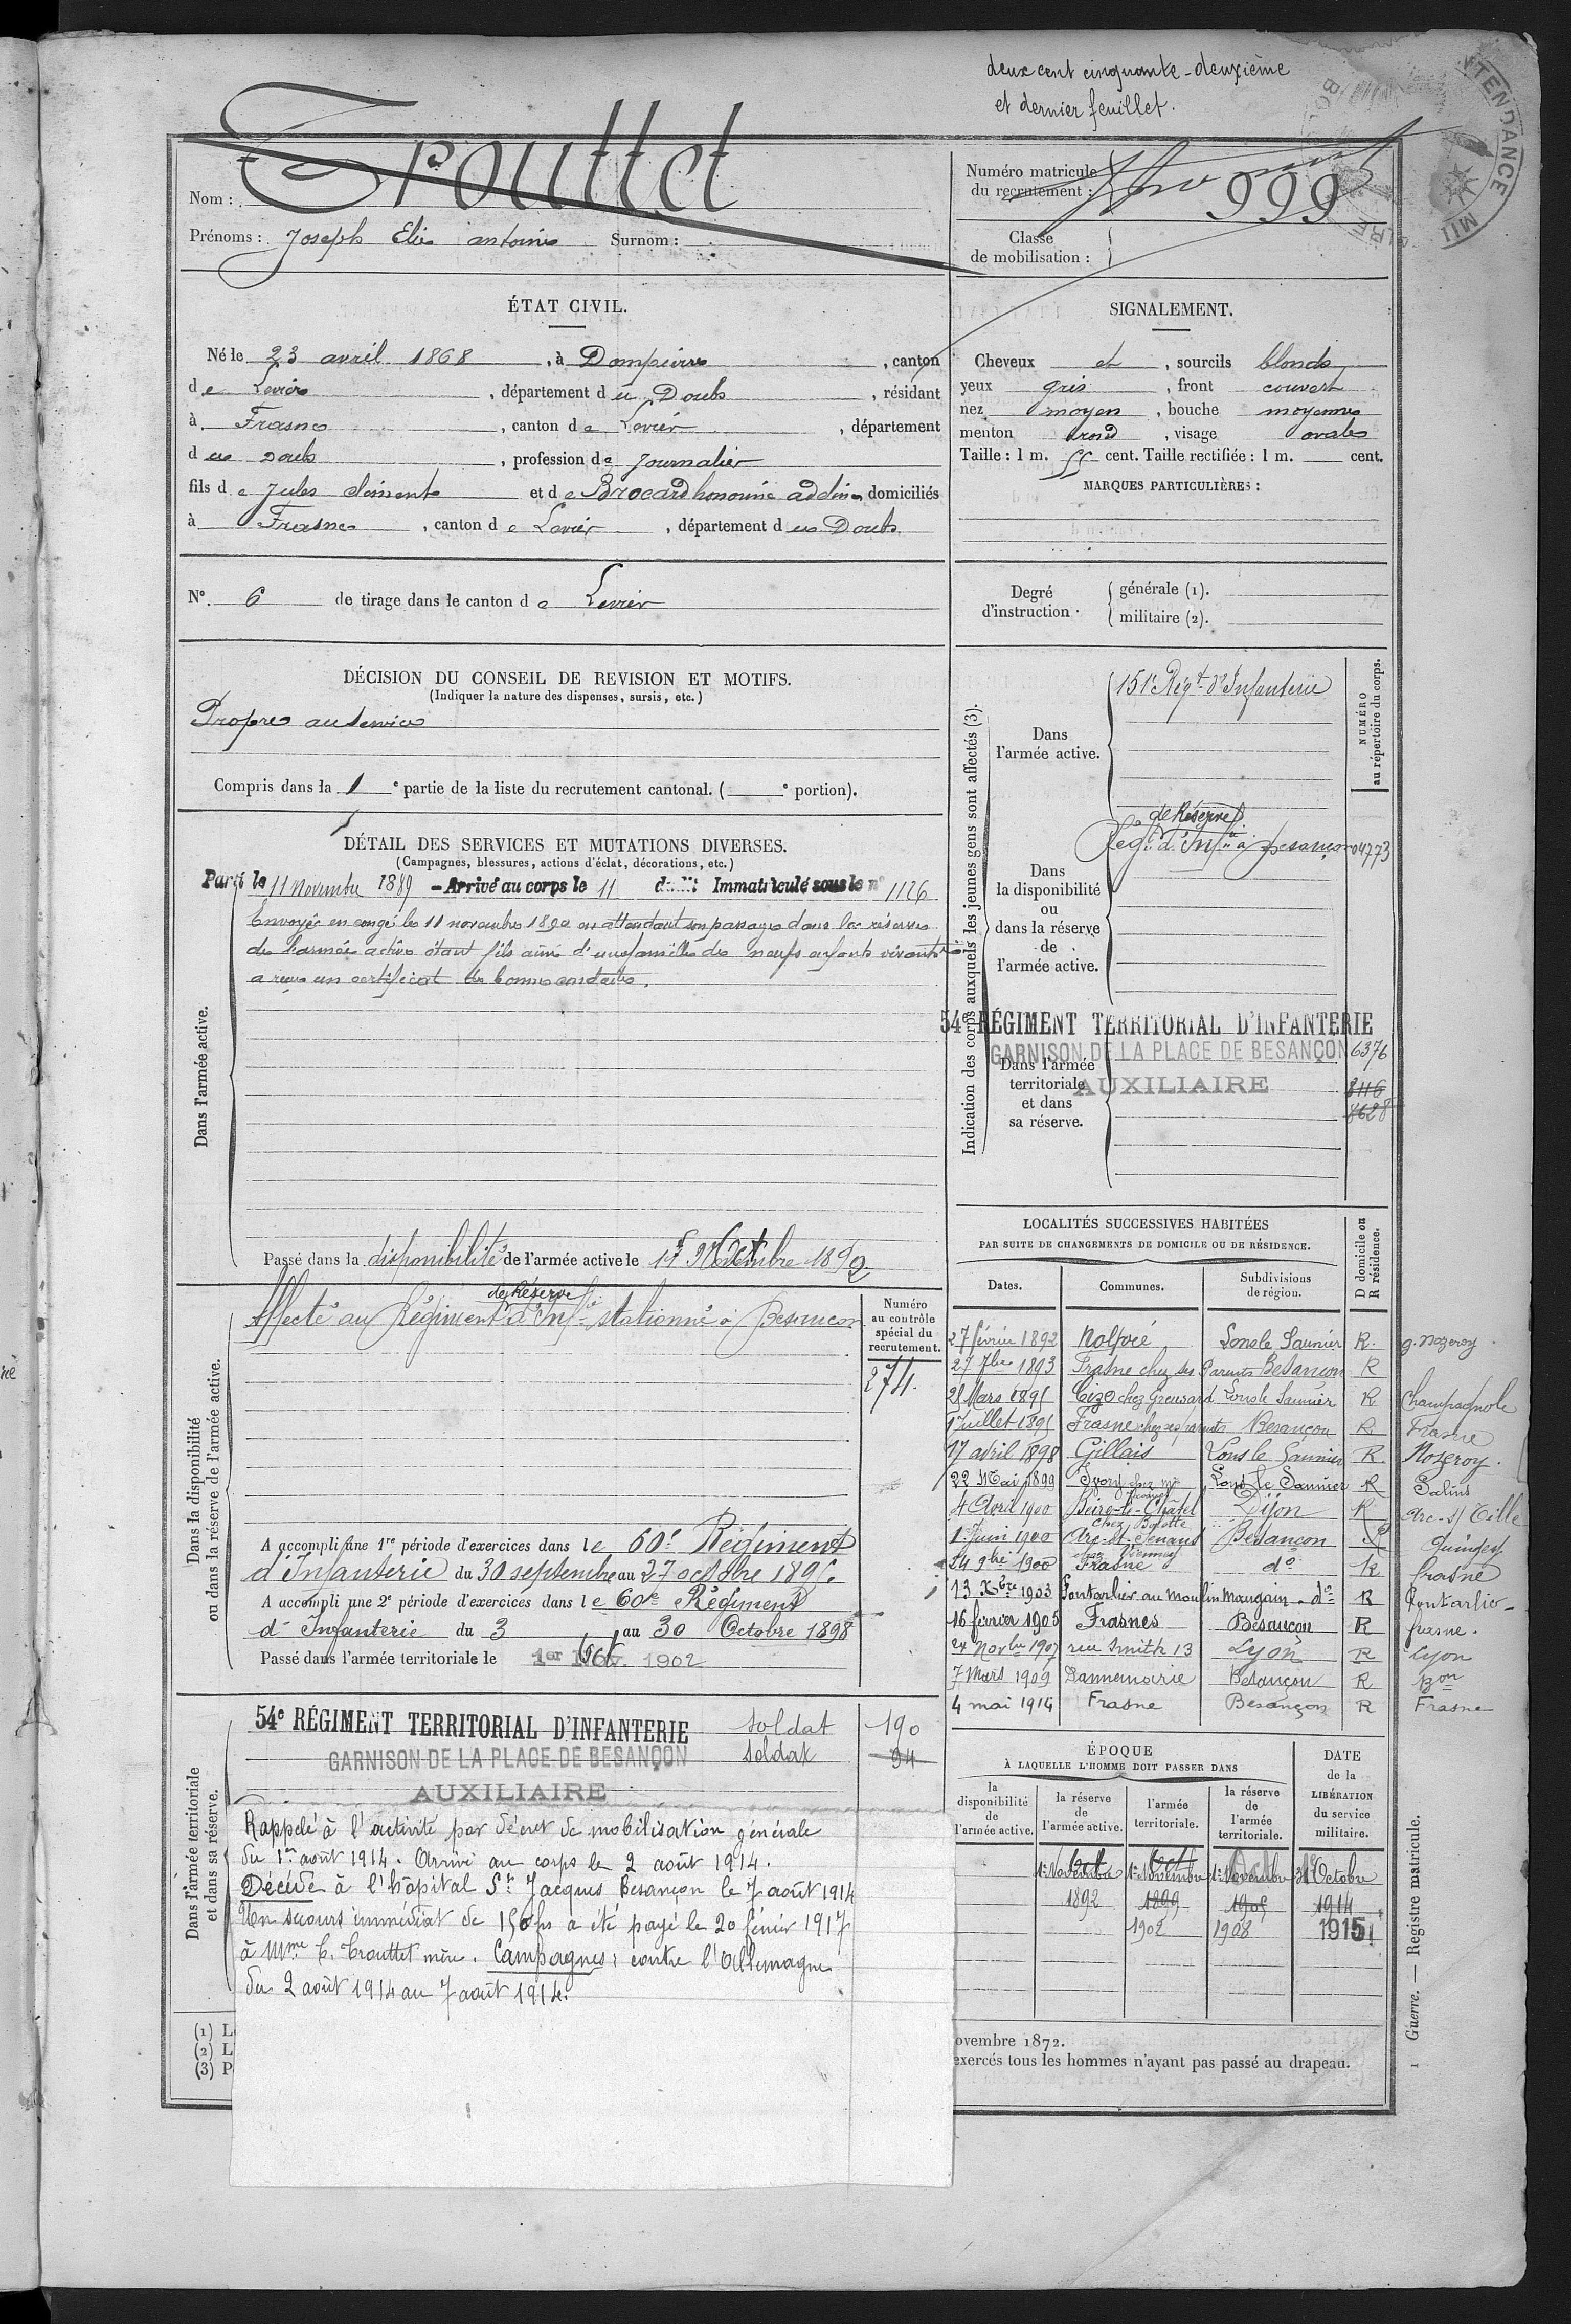 deux cent cinquante-deuxième
et dernier feuillet.
INTENDANCE MILITAIRE
Nom : Trouttet
Prénoms : Joseph Elie antoine Surnom :
Numéro matricule du recrutement : 999
Classe de mobilisation :
ÉTAT CIVIL.
Né le 23 avril 1868, à Dompierre, canton
de Levier, département du Doubs, résidant
à Frasne, canton de Levier, département
du Doubs, profession de Journalier
fils de Jules clément et de Brocard honorine adeline domiciliés
à Frasne, canton de Levier, département du Doubs
SIGNALEMENT.
Cheveux et, sourcils blonds
yeux gris, front couvert
nez moyen, bouche moyenne
menton rond, visage ovale
Taille : 1 m. 55 cent. Taille rectifiée : 1 m. cent.
MARQUES PARTICULIÈRES :
N° 6 de tirage dans le canton de Levier
Degré d'instruction. générale (1).
militaire (2).
DÉCISION DU CONSEIL DE REVISION ET MOTIFS.
(Indiquer la nature des dispenses, sursis, etc.)
Propre au service
Compris dans la 1e partie de la liste du recrutement cantonal. ( e portion).
DÉTAIL DES SERVICES ET MUTATIONS DIVERSES.
(Campagnes, blessures, actions d'éclat, décorations, etc.)
Dans l'armée active.
Parti le 11 novembre 1889 - Arrivé au corps le 11 dudit Immatriculé sous le n° 1126
Envoyé en congé le 11 novembre 1890 en attendant son passage dans la réserve
de l'armée active étant fils aîné d'une famille de neufs enfants vivants
a reçu un certificat de bonne conduite.
Passé dans la disponibilité de l'armée active le 1er Oct Novembre 1892
Indication des corps auxquels les jeunes gens sont affectés (3).
NUMÉRO au répertoire du corps.
Dans l'armée active.
151e Régt d'Infanterie
Dans la disponibilité ou dans la réserve de l'armée active.
de Réserve
Régt d'Infie à Besançon 04773
Dans l'armée territoriale et dans sa réserve.
54e RÉGIMENT TERRITORIAL D'INFANTERIE
GARNISON DE LA PLACE DE BESANÇON 6376
AUXILIAIRE 8116
8628
Dans la disponibilité ou dans la réserve de l'armée active.
Numéro au contrôle spécial du recrutement.
274.
de Réserve
Affecté au Régiment d'Infie stationné à Besançon
A accompli une 1re période d'exercices dans le 60e Régiment
d'Infanterie du 30 septembre au 27 octobre 1895.
A accompli une 2e période d'exercices dans le 60e Régiment
d'Infanterie du 3 au 30 Octobre 1898
Passé dans l'armée territoriale le 1er Oct. 1902
LOCALITÉS SUCCESSIVES HABITÉES
PAR SUITE DE CHANGEMENTS DE DOMICILE OU DE RÉSIDENCE.
Dates. Communes. Subdivisions de région. D domicile ou R résidence.
27 février 1892 Lons le Saunier R. g. nozeroy
27 7bre 1893 Frasne chez ses Parents Besançon R
28 Mars 1895 Cize chez Lons le Saunier R Champagnole
1 Juillet 1895 Frasne chez ses parents Besançon R Frasne
17 avril 1898 Gillois Lons le Saunier R. Nozeroy.
22 Mai 1899 Ivory chez Lons le Saunier R Salins
4 Avril 1900 Beire-le-Châtel Dijon R Arc-s/Tille
1er Juin 1900 Arc-et-Senans Besançon R Quingey
24 9bre 1900 Frasne do R frasne
13 Xbre 1903 Pontarlier au Moulin Maugain do R Pontarlier
16 février 1905 Frasnes Besançon R frasne.
24 Novbre 1907 rue Smith 13 Lyon R Lyon
7 Mars 1909 Dannemarie Besançon R Bon
4 mai 1914 Frasne Besançon R Frasne
Dans l'armée territoriale et dans sa réserve.
54e RÉGIMENT TERRITORIAL D'INFANTERIE soldat 190
GARNISON DE LA PLACE DE BESANÇON soldat 94
AUXILIAIRE
Rappelé à l'activité par décret de mobilisation générale
du 1er août 1914. Arrivé au corps le 2 août 1914.
Décédé à l'hôpital St Jacques Besançon le 7 août 1914
Un secours immédiat de 150 frs a été payé le 20 février 1917
à Mme C. Trouttet mère. Campagnes : contre l'Allemagne
du 2 août 1914 au 7 août 1914.
ÉPOQUE
À LAQUELLE L'HOMME DOIT PASSER DANS
la disponibilité de l'armée active.
la réserve de l'armée active.
l'armée territoriale.
la réserve de l'armée territoriale.
DATE de la LIBÉRATION du service militaire.
1er Novembre Oct 1er Novembre Oct 1er Novembre 31 Octobre
1892 1899 1905 1914
1902 1908 1915
(1) L
(2) L
(3) P
ovembre 1872.
exercés tous les hommes n'ayant pas passé au drapeau.
1 Guerre. — Registre matricule.